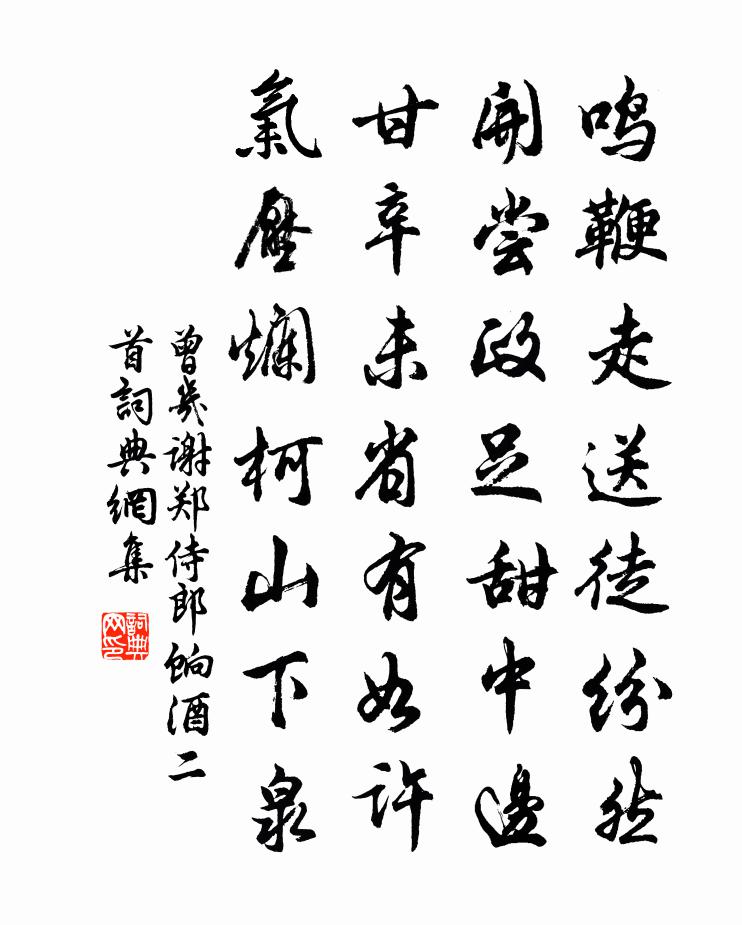 鸣鞭走送徒纷然
開嘗政足甜中邊
甘辛未省有如許
氣壓爛柯山下泉
曾幾谢郑侍郎餉酒二
首詞典網集
詞典网印